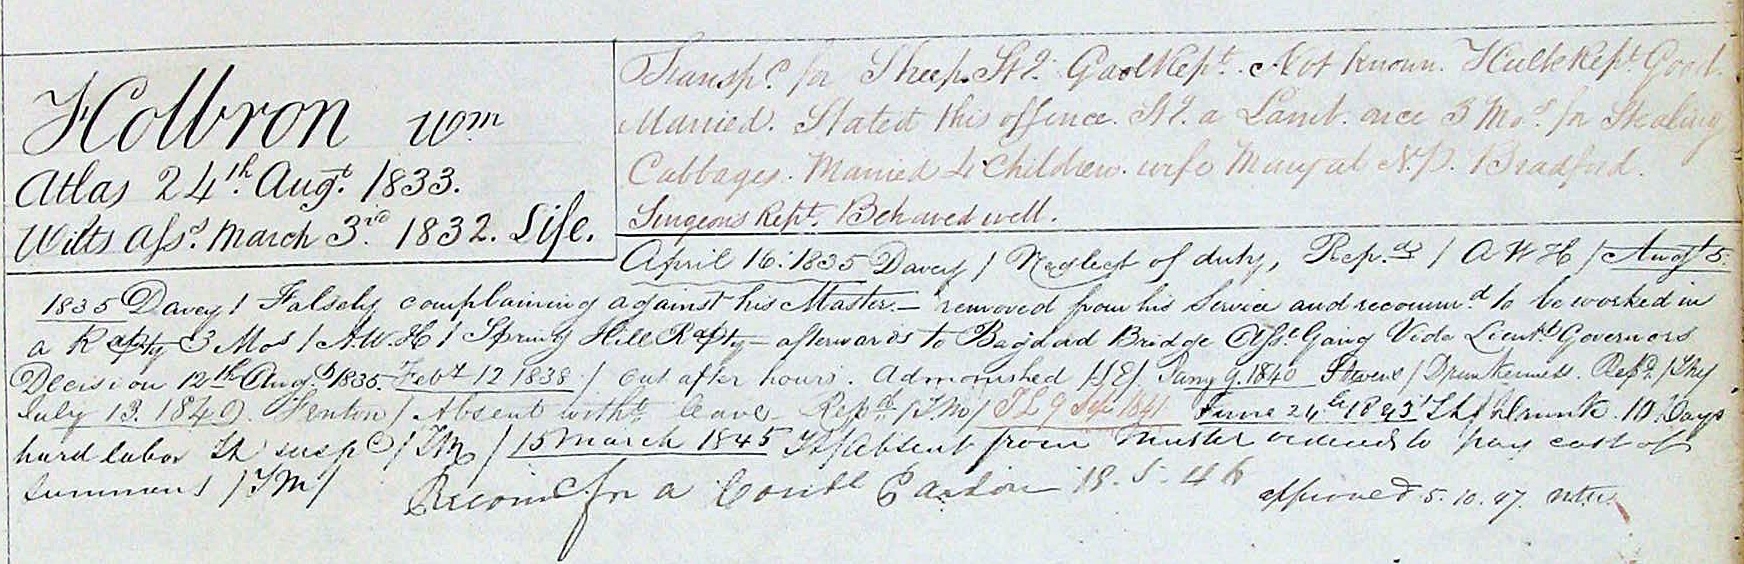 Holbron Wm
Atlas 24th Augt. 1833.
Wilts Asss. March 3rd 1832. Life.
Transpd for Sheep Stg. Gaol Rept. Not known. Hulk Rept Good.
Married. Stated this offence. Stg. a Lamb. once 3 Mos. for Stealing
Cabbages. Married 4 Children. wife Margat N.P. Bradford.
Surgeons Rept. Behaved well.
April 16. 1835 Davey / Neglect of duty, Rep.d / A W H / Augt 5.
1835 Davey / Falsely complaining against his Master — removed from his Service and recommd to be worked in
a R Pty 3 Mos / A.W.H / Spring Hill R Pty — afterwards to Bagdad Bridge Gang Vide Lieut Governors
Decision 12th Augt 1835. Feby 12 1838 / Out after hours. Admonished / Jany 9. 1840 Stevens / Drunkenness. Repd. /
July 13. 1840. Fenton / Absent witht leave — Repd / J.M / TL 9 Sep 1841 June 24th 1843 TL Drunk. 10 Days
hard labor / 15 March 1845 TL / Absent from Muster ordered to pay cost of
Summons / J M /
Recomd for a Condl Pardon 19. 5. 46 approved 5. 10. 47.